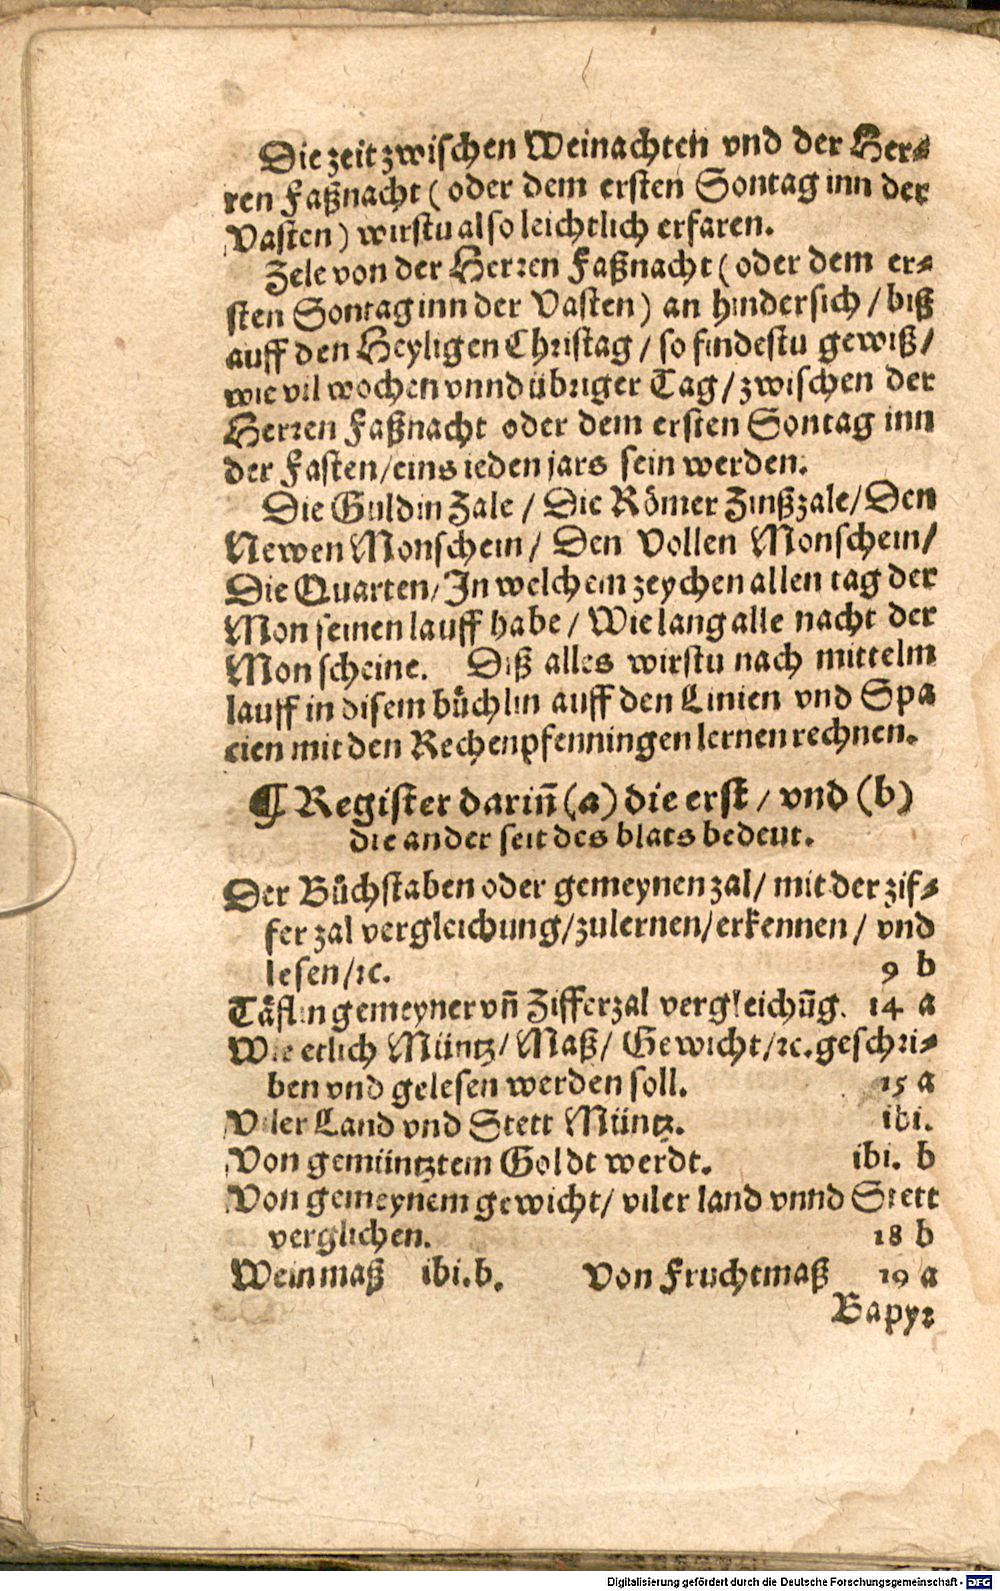 Die zeit zwischen Weinachten vnd der Her⸗
ren Faßnacht (oder dem ersten Sontag inn der
Vasten) wirstu also leichtlich erfaren.
Zele von der Herren Faßnacht (oder dem er⸗
sten Sontag inn der Vasten) an hindersich / biß
auff den Heyligen Christag / so findestu gewiß /
wie vil wochen vnnd übriger Tag / zwischen der
Herren Faßnacht oder dem ersten Sontag inn
der Fasten / eins ieden jars sein werden.
Die Guldin Zale / Die Römer Zinßzale / Den
Newen Monschein / Den Vollen Monschein /
Die Quarten / In welchem zeychen allen tag der
Mon seinen lauff habe / Wie lang alle nacht der
Mon scheine. Diß alles wirstu nach mittelm
lauff in disem büchlin auff den Linien vnd Spa
cien mit den Rechenpfenningen lernen rechnen.
¶ Register dariñ (a) die erst / vnd (b)
die ander seit des blats bedeut.
Der Bůchstaben oder gemeynen zal / mit der zif⸗
fer zal vergleichung / zulernen / erkennen / vnd
lesen / ꝛc. 9 b
Täflin gemeyner vñ Zifferzal vergleichũg. 14 a
Wie etlich Müntz / Maß / Gewicht / ꝛc. geschri⸗
ben vnd gelesen werden soll. 15 a
Viler Land vnd Stett Müntz. ibi.
Von gemüntztem Goldt werdt. ibi. b
Von gemeynem gewicht / viler land vnnd Stett
verglichen. 18 b
Weinmaß ibi. b. Von Fruchtmaß 19 a
Bapyr
Digitalisierung gefördert durch die Deutsche Forschungsgemeinschaft - DFG